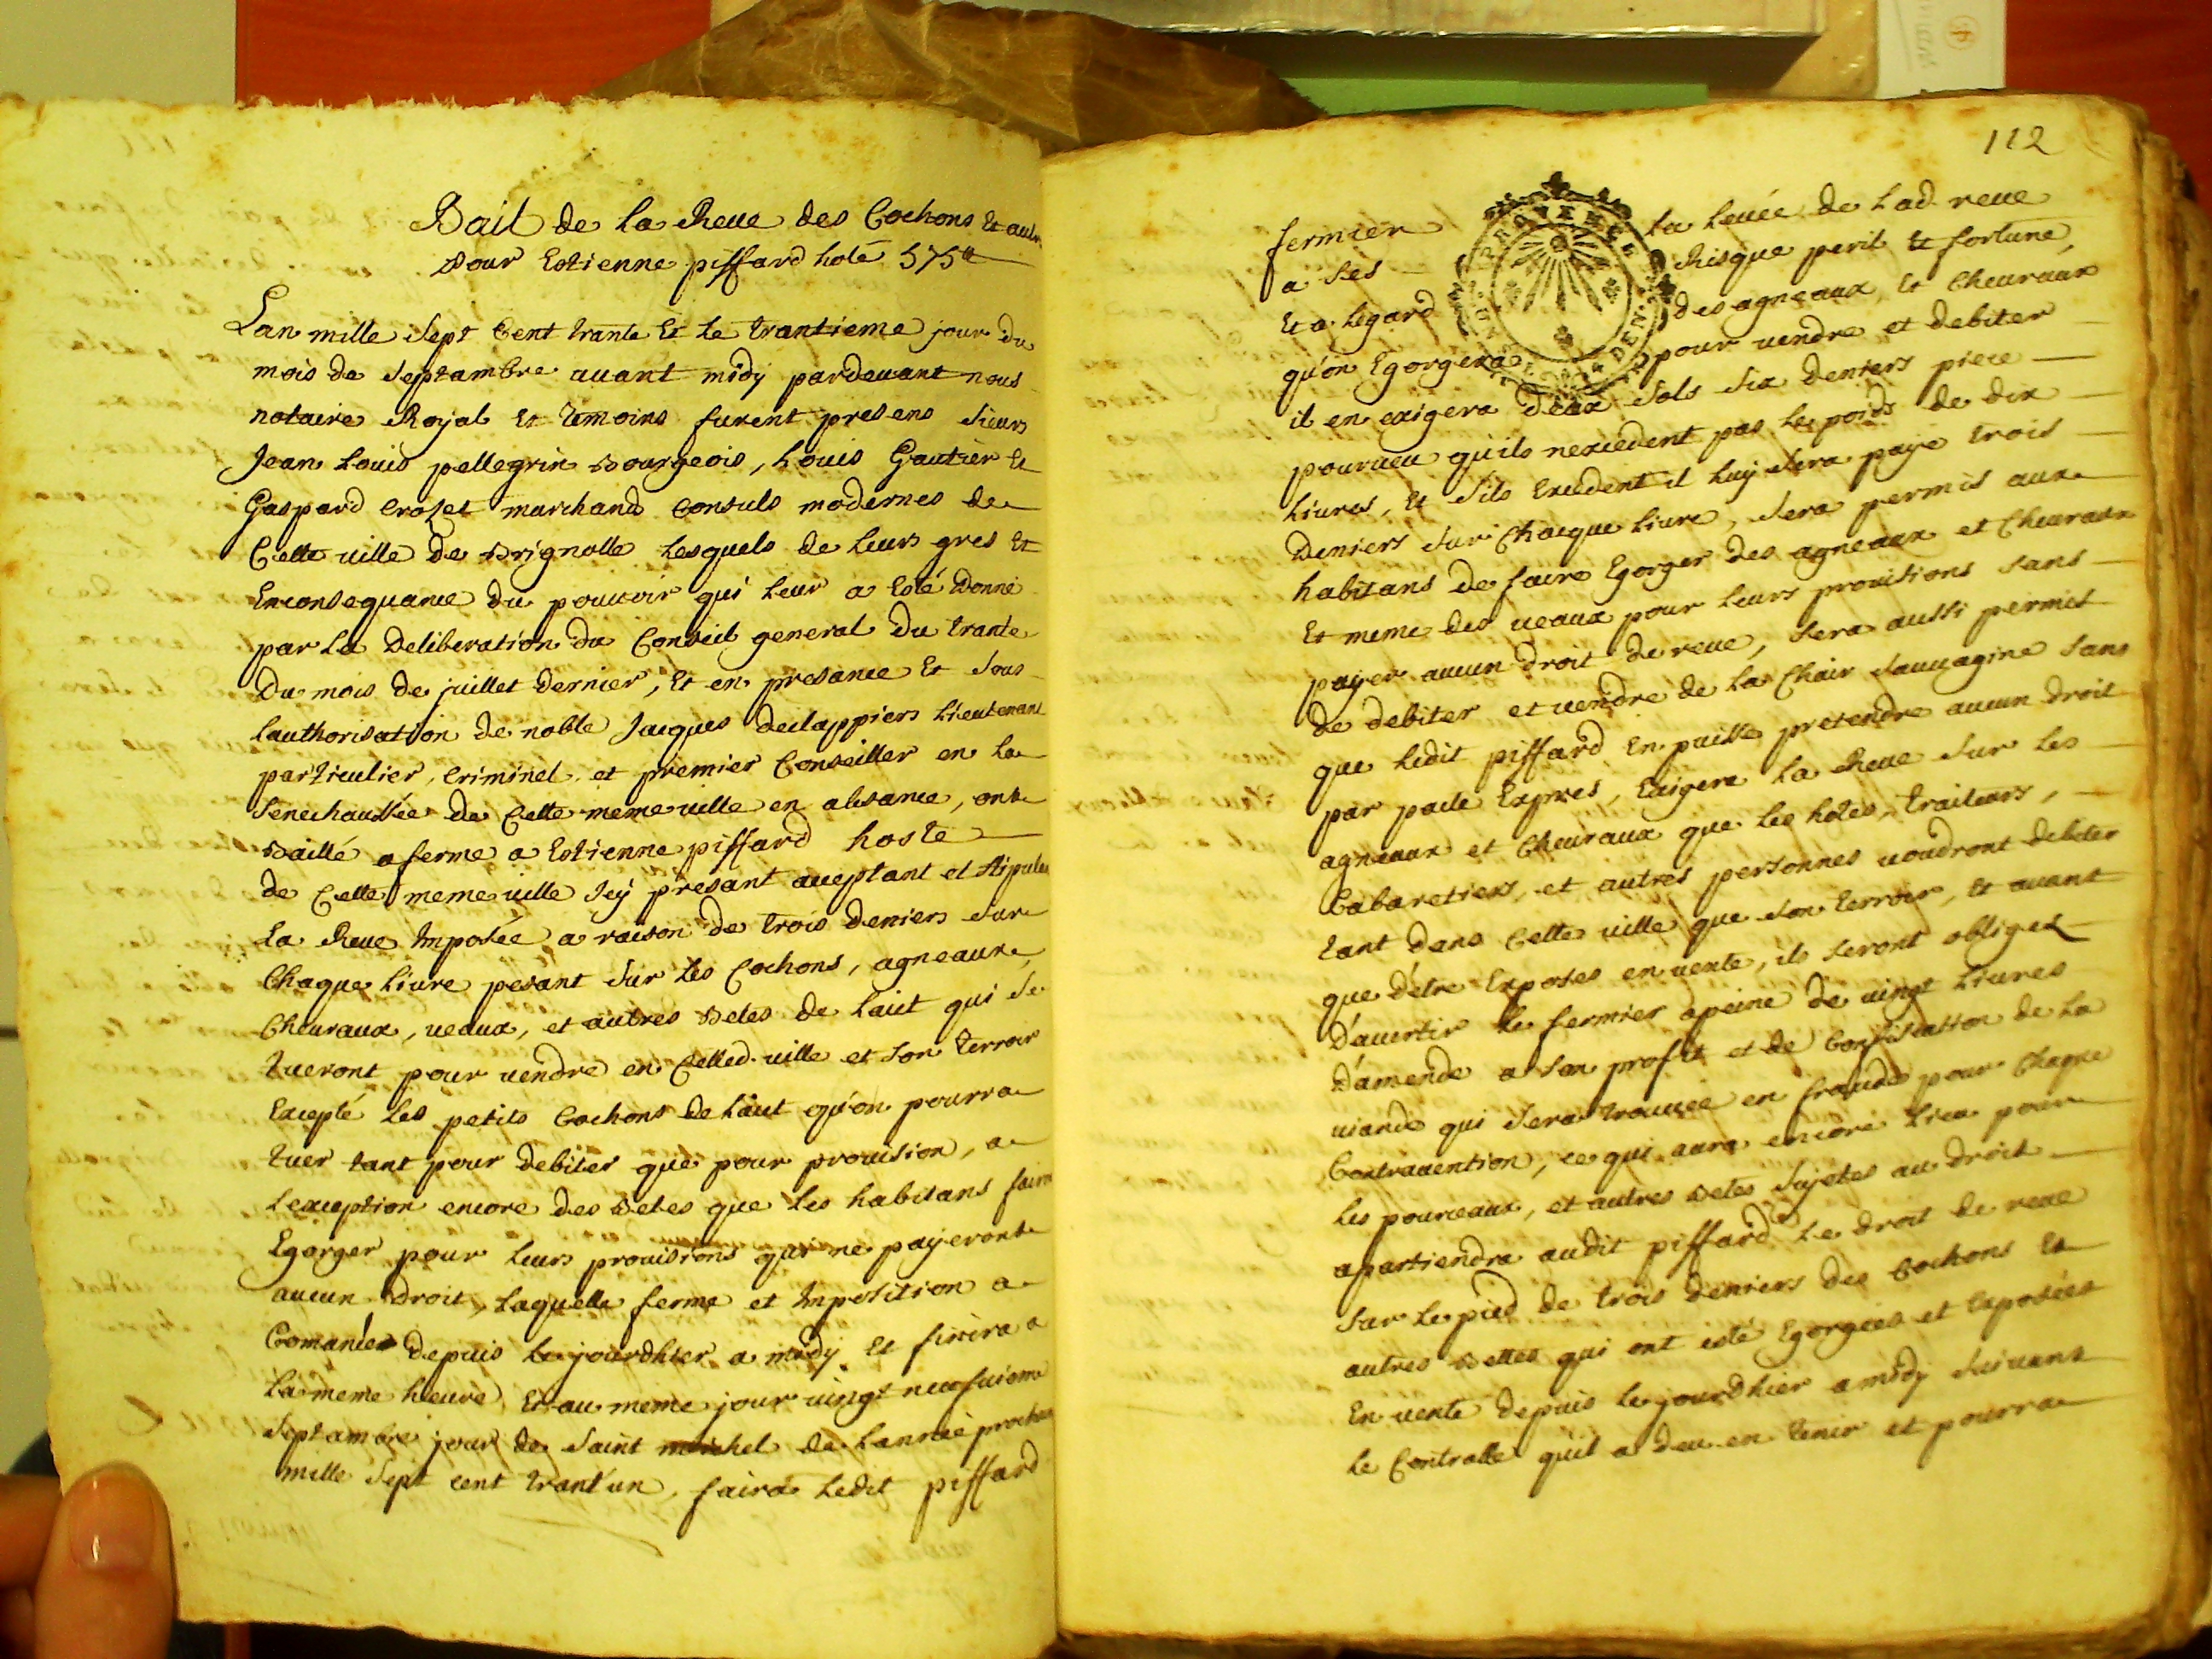 Bail de la Reue des Cochons Et autr
Pour Estienne piffard hoté 575tt
Lan mille Sept Cent trante Et le trantieme jour du
mois de Septambre auant midy pardeuant nous
notaire Royal Et temoins furent presens sieurs
Jean Louis pellegrin Bourgeois, Louis Gautier Et
Gaspard Crozet marchands Consuls modernes de
Cette ville de Brignolle Lesquels de leurs gres Et
Enconsequance du pouuoir qui leur a Esté Donné
par La Deliberation du Conseil general du trante
Du mois de juillet Dernier, Et en presance Et Sous
Lauthorisation de noble Jacques declappiers Lieutenant
particulier, Criminel et premier Conseiller en La
Senechaussée de Cette meme ville en absance, ont
Baillé a ferme a Estienne piffard hoste
de Cette meme ville Icy présant aceptant et stipulan
La Reue Imposée a raison de trois Deniers Sur
Chaque Liure pesant Sur Les Cochons, agneaux,
Cheuraux, ueaux, et autres Betes de Lait qui Se
tueront pour uendre en Cetted. ville et son terroir
Excepté Les petits Cochons de Lait qu'on pourra
tuer tant pour debiter que pour prouision, a
Lexception encore des Betes que Les habitans fairon
Egorger pour leurs prouisions qui ne payeront
aucun Droit, Laquelle ferme et Imposition a
Comancé depuis Le jourdhier a midy Et finira a
La meme heure Et au meme jour uingt neufuieme
Septambre jour de Saint michel de Lannée prochai
mille Sept cent trant'un, faira Ledit piffard
112
fermier La Leuée de Lad. reue
a Ses Risque peril Et fortune,
Et a Legard des agneaux Et Cheuraux
qu'on Egorgera pour uendre et debiter
il en exigera deux Sols Six Deniers piece
pourueu qu'ils nexcedent pas Le poids de dix
Liures, Et S'ils Excedent il Luy Sera payé trois
Deniers Sur Chacque Liure, Sera permis aux
habitans de faire Egorger des agneaux et Cheuraux
Et meme des ueaux pour Leurs prouisions Sans
payer aucun droit de reue, Sera aussi permis
de debiter et uendre de La Chair Sauuagine Sans
que Ledit piffard En puisse prétendre aucun droit
par pacte Expres, Exigera La Reue Sur Les
agneaux et Cheuraux que Les hôtes, traiteurs,
Cabaretiers, et autres personnes uoudront debiter
tant dans Cette uille que Son terroir, Et auant
que d'étre Exposés en uente, ils Seront obliges
D'auertir Le fermier apeine de uingt Liures
D'amende a Son profit et de Confiscation de La
uiande qui Sera trouuée en fraude pour Chaque
Contrauention, ce qui aura encore Lieu pour
Les pourceaux, et autres Betes Sujetes au droit
apartiendra audit piffard Le droit de reue
Sur Le pied de trois Deniers des Cochons Et
autres Bettes qui ont esté Egorgées et Exposées
En uente depuis Le jourdhier a midy Suiuant
Le Controlle quil a deu en tenir et pourra